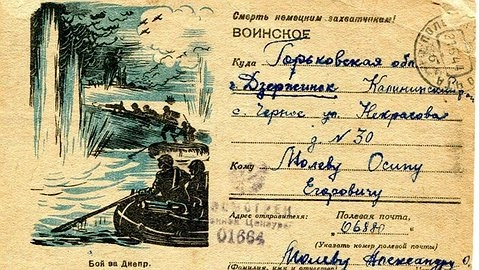 Смерть немецким захватчикам!
ВОИНСКОЕ
Куда Горьковская обл.
г. Дзержинск Калининский
с. Черное ул. Некрасова
д N 30
Кому Молеву Осипу
Егоровичу
Адрес отправителя: Полевая почта,
06880
(Указать номер полевой почты)
Молеву Александру О.
(Фамилия, имя и отчество)
01664
Бой за Днепр.